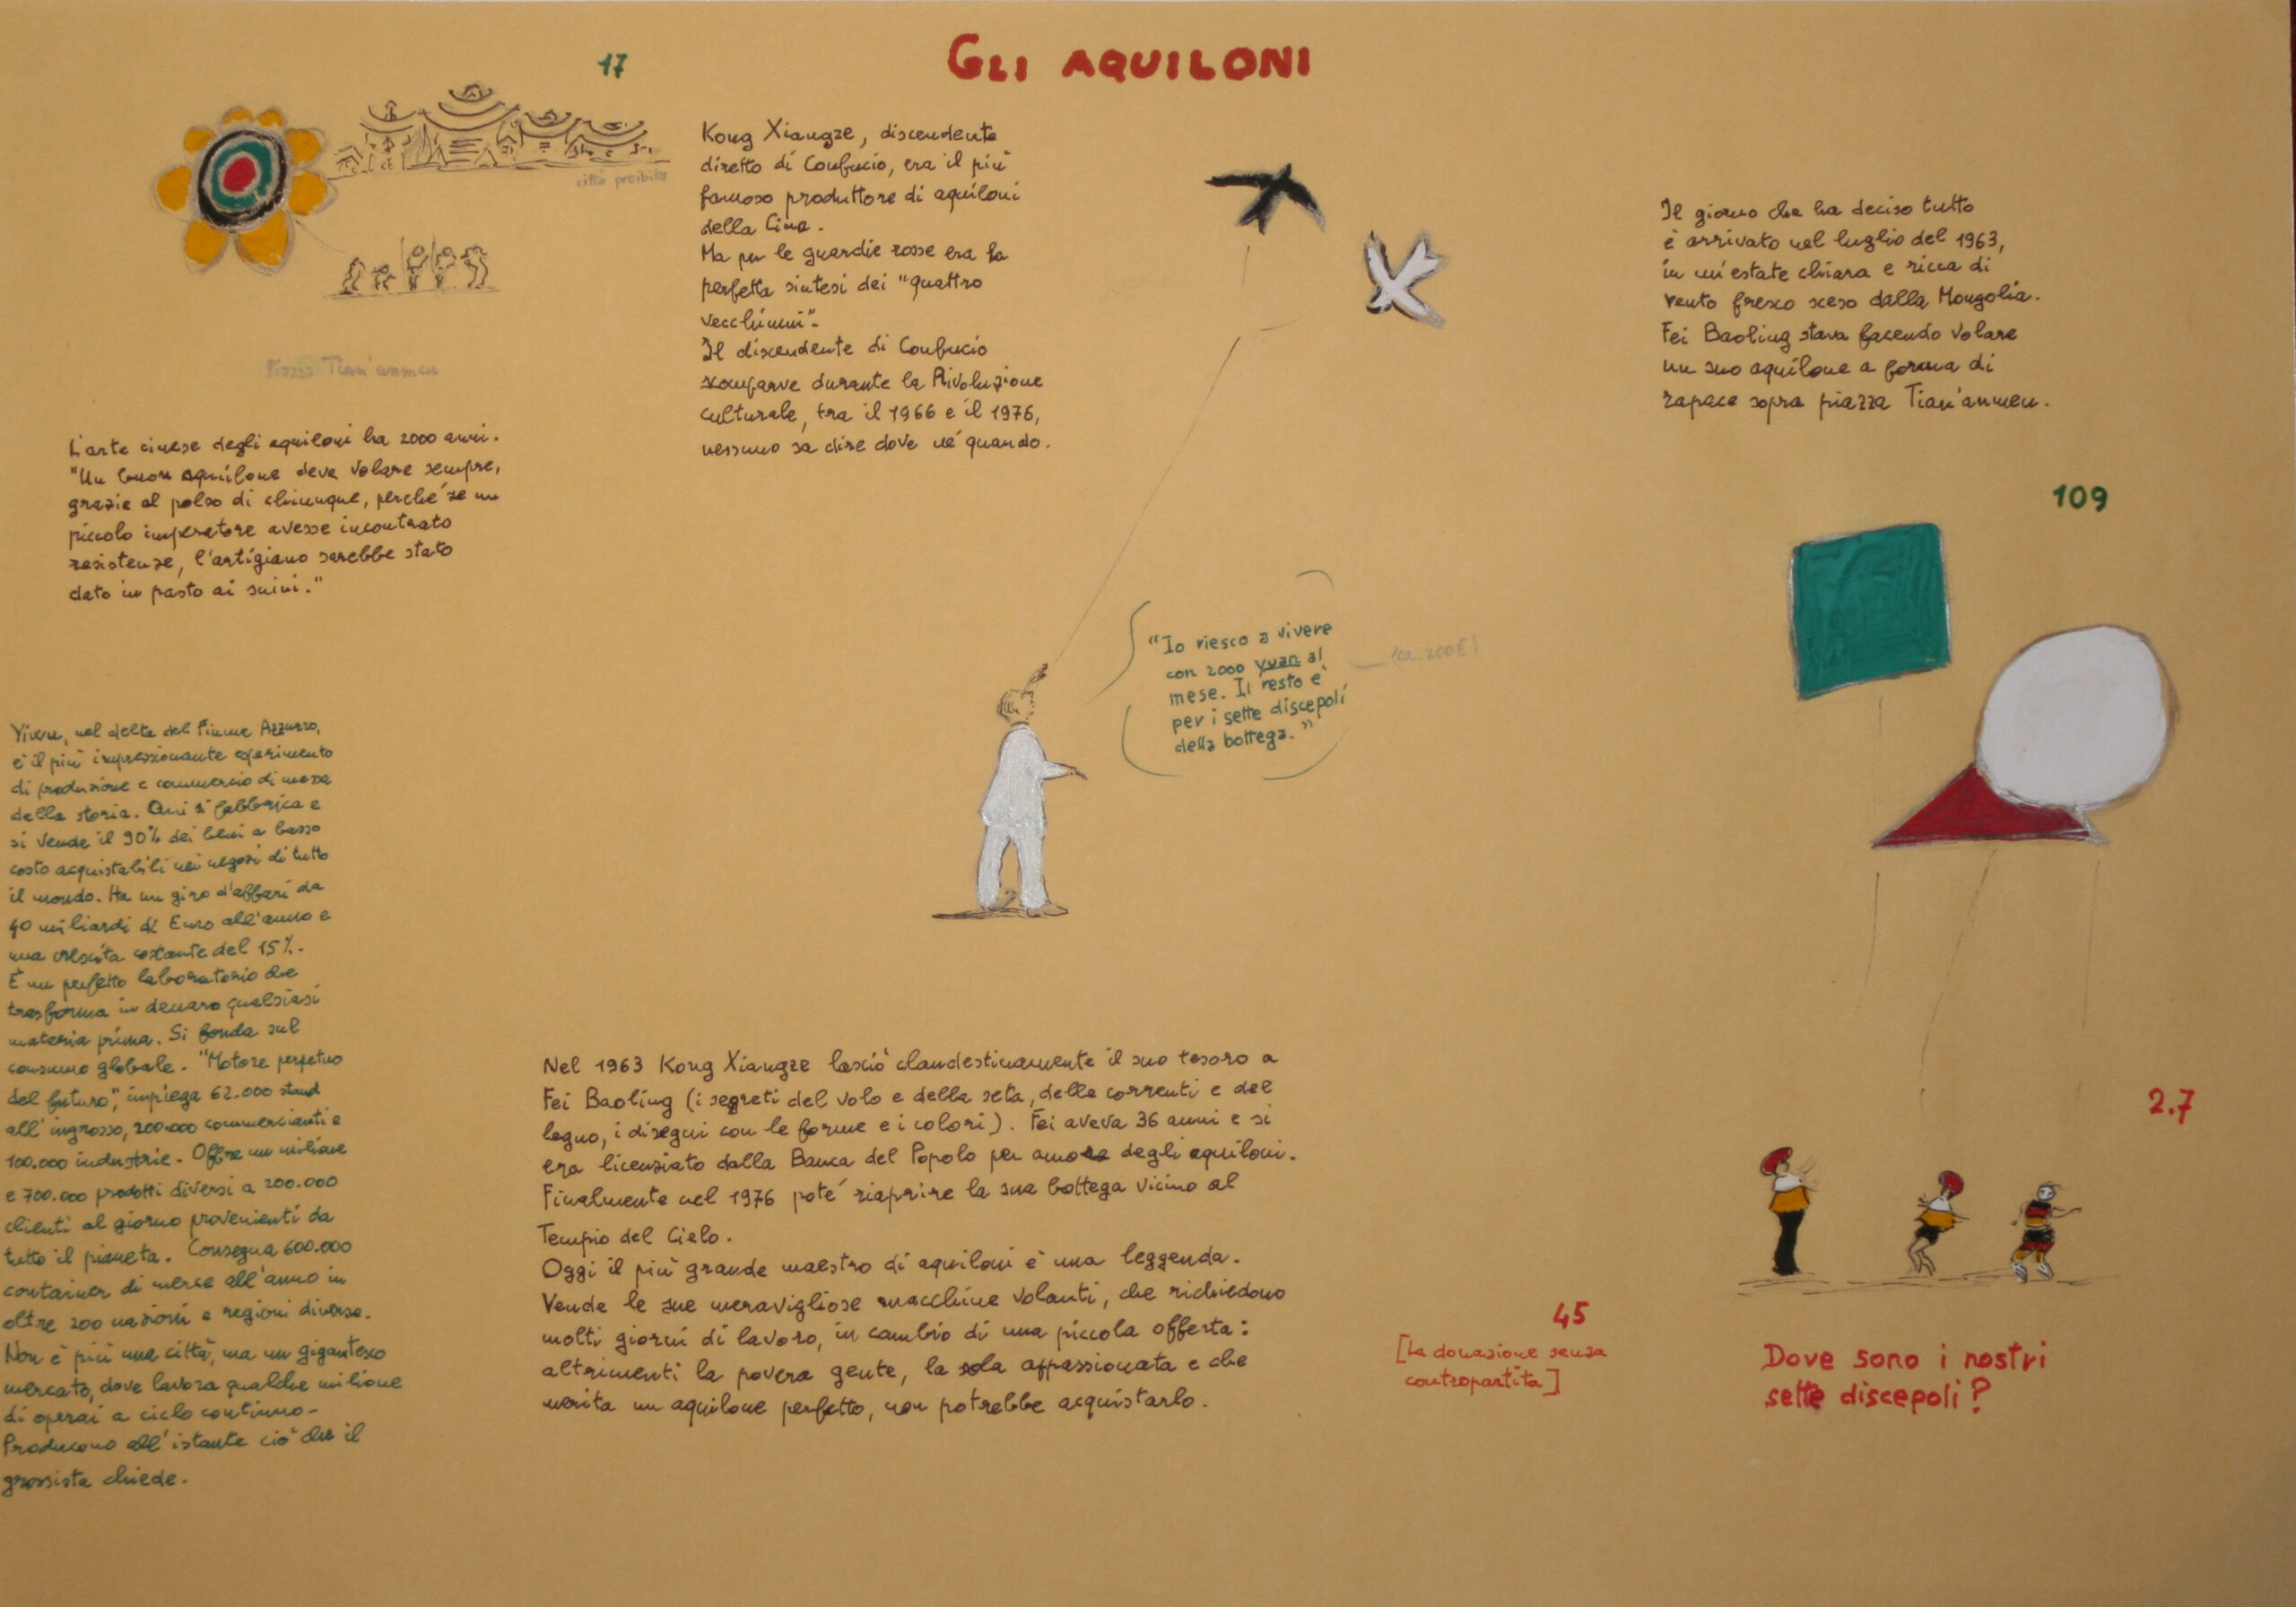 GLI AQUILONI
17
città proibita
Piazza Tian'anmen
L'arte cinese degli aquiloni ha 2000 anni.
"Un buon aquilone deve volare sempre,
grazie al polso di chiunque, perché se un
piccolo imperatore avesse incontrato
resistenze, l'artigiano sarebbe stato
dato in pasto ai suini."
Yiwu, nel delta del Fiume Azzurro,
è il più impressionante esperimento
di produzione e commercio di massa
della storia. Qui si fabbrica e
si vende il 90% dei beni a basso
costo acquistabili nei negozi di tutto
il mondo. Ha un giro d'affari da
40 miliardi di Euro all'anno e
una crescita costante del 15%.
È un perfetto laboratorio che
trasforma in denaro qualsiasi
materia prima. Si fonda sul
consumo globale. "Motore perpetuo
del futuro", impiega 62.000 stand
all'ingrosso, 200.000 commercianti e
100.000 industrie. Offre un milione
e 700.000 prodotti diversi a 200.000
clienti al giorno provenienti da
tutto il pianeta. Consegna 600.000
container di merce all'anno in
oltre 200 nazioni e regioni diverse.
Non è più una città, ma un gigantesco
mercato, dove lavora qualche milione
di operai a ciclo continuo.
Producono all'istante ciò che il
grossista chiede.
Kong Xiangze, discendente
diretto di Confucio, era il più
famoso produttore di aquiloni
della Cina.
Ma per le guardie rosse era la
perfetta sintesi dei "quattro
vecchiumi".
Il discendente di Confucio
scomparve durante la Rivoluzione
culturale, tra il 1966 e il 1976,
nessuno sa dire dove né quando.
"Io riesco a vivere
con 2000 yuan al
mese. Il resto è
per i sette discepoli
della bottega."
(ca. 200€)
Nel 1963 Kong Xiangze lasciò clandestinamente il suo tesoro a
Fei Baoling (i segreti del volo e della seta, delle correnti e del
legno, i disegni con le forme e i colori). Fei aveva 36 anni e si
era licenziato dalla Banca del Popolo per amore degli aquiloni.
Finalmente nel 1976 poté riaprire la sua bottega vicino al
Tempio del Cielo.
Oggi il più grande maestro di aquiloni è una leggenda.
Vende le sue meravigliose macchine volanti, che richiedono
molti giorni di lavoro, in cambio di una piccola offerta:
altrimenti la povera gente, la sola appassionata e che
merita un aquilone perfetto, non potrebbe acquistarlo.
Il giorno che ha deciso tutto
è arrivato nel luglio del 1963,
in un'estate chiara e ricca di
vento fresco sceso dalla Mongolia.
Fei Baoling stava facendo volare
un suo aquilone a forma di
rapace sopra piazza Tian'anmen.
109
2.7
45
[La donazione senza
contropartita]
Dove sono i nostri
sette discepoli?